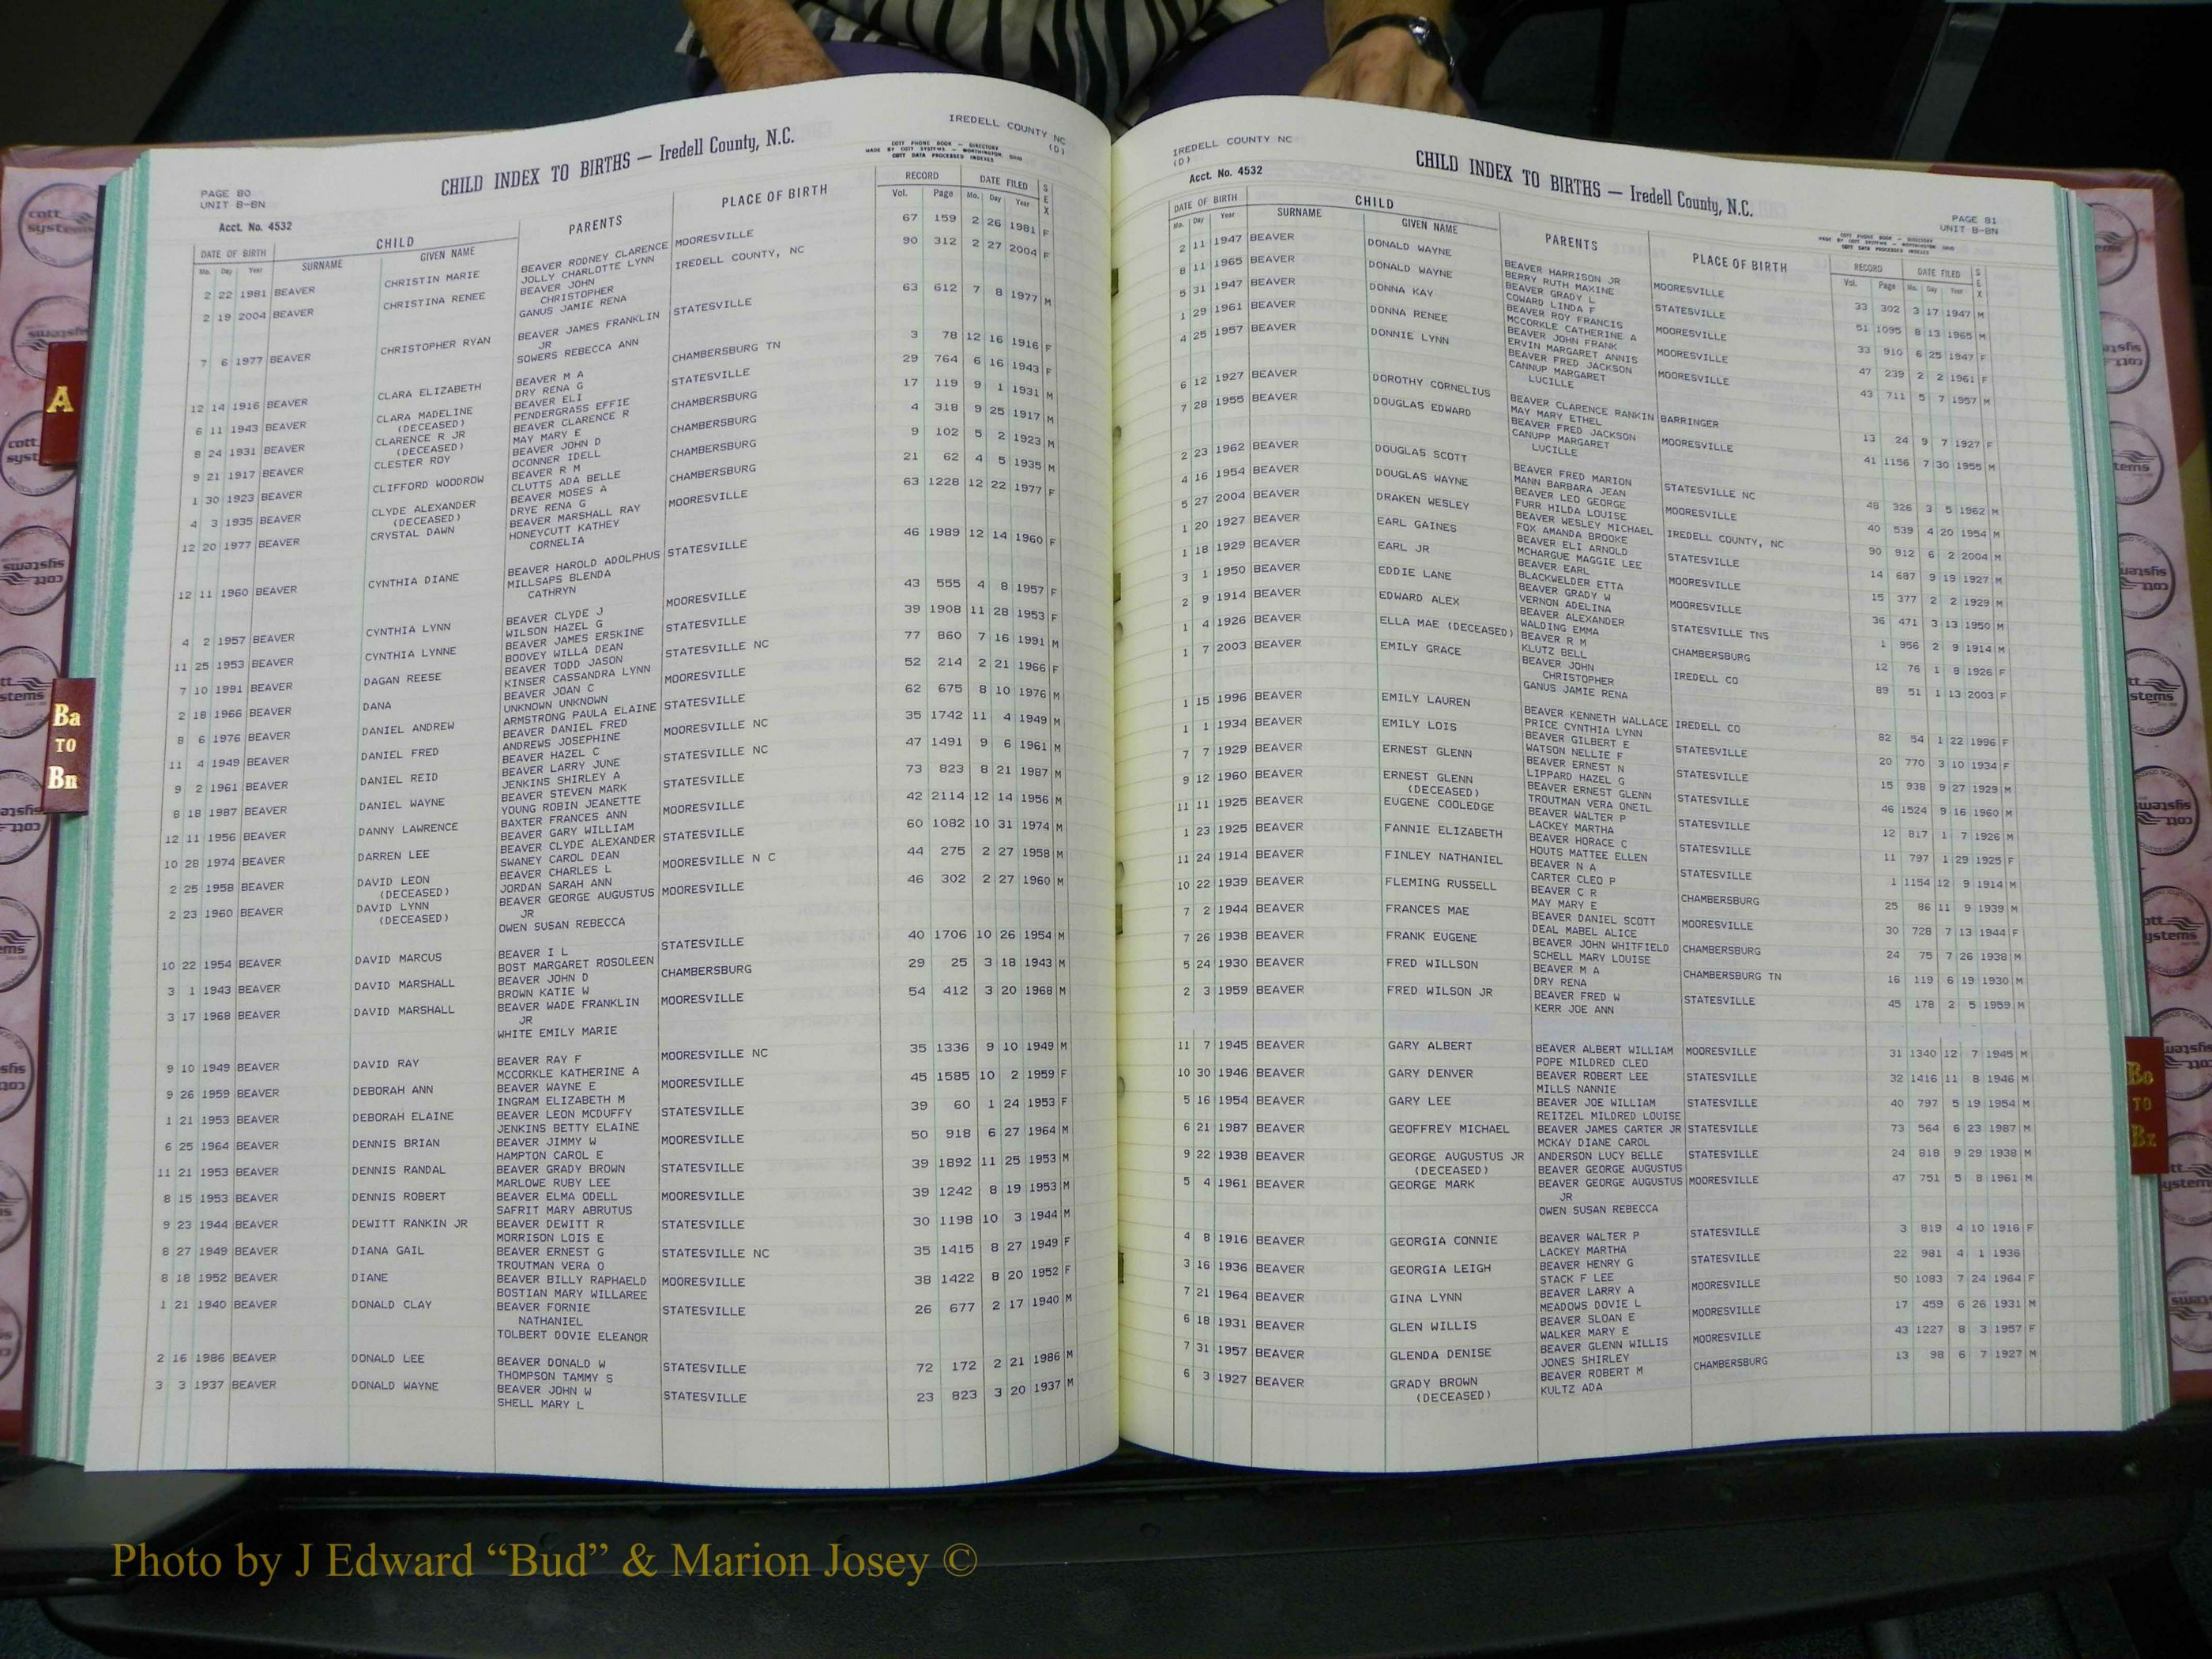 IREDELL COUNTY NC
(D)
CHILD INDEX TO BIRTHS — Iredell County, N.C.
COTT PHONE BOOK — DIRECTORY
MADE BY COTT SYSTEMS — WORTHINGTON, OHIO
COTT DATA PROCESSED INDEXES
PAGE 80
UNIT B-BN
Acct. No. 4532
DATE OF BIRTH CHILD PARENTS PLACE OF BIRTH RECORD DATE FILED SEX
Mo. Day Year SURNAME GIVEN NAME Vol. Page Mo. Day Year
2 22 1981 BEAVER CHRISTIN MARIE BEAVER RODNEY CLARENCE MOORESVILLE 67 159 2 26 1981 F
JOLLY CHARLOTTE LYNN
2 19 2004 BEAVER CHRISTINA RENEE BEAVER JOHN IREDELL COUNTY, NC 90 312 2 27 2004 F
CHRISTOPHER
GANUS JAMIE RENA
7 6 1977 BEAVER CHRISTOPHER RYAN BEAVER JAMES FRANKLIN STATESVILLE 63 612 7 8 1977 M
JR
SOWERS REBECCA ANN
12 14 1916 BEAVER CLARA ELIZABETH BEAVER M A CHAMBERSBURG TN 3 78 12 16 1916 F
DRY RENA G
6 11 1943 BEAVER CLARA MADELINE BEAVER ELI STATESVILLE 29 764 6 16 1943 F
(DECEASED) PENDERGRASS EFFIE
8 24 1931 BEAVER CLARENCE R JR BEAVER CLARENCE R CHAMBERSBURG 17 119 9 1 1931 M
(DECEASED) MAY MARY E
9 21 1917 BEAVER CLESTER ROY BEAVER JOHN D CHAMBERSBURG 4 318 9 25 1917 M
OCONNER IDELL
1 30 1923 BEAVER CLIFFORD WOODROW BEAVER R M CHAMBERSBURG 9 102 5 2 1923 M
CLUTTS ADA BELLE
4 3 1935 BEAVER CLYDE ALEXANDER BEAVER MOSES A CHAMBERSBURG 21 62 4 5 1935 M
(DECEASED) DRYE RENA G
12 20 1977 BEAVER CRYSTAL DAWN BEAVER MARSHALL RAY MOORESVILLE 63 1228 12 22 1977 F
HONEYCUTT KATHEY
CORNELIA
12 11 1960 BEAVER CYNTHIA DIANE BEAVER HAROLD ADOLPHUS STATESVILLE 46 1989 12 14 1960 F
MILLSAPS BLENDA
CATHRYN
4 2 1957 BEAVER CYNTHIA LYNN BEAVER CLYDE J MOORESVILLE 43 555 4 8 1957 F
WILSON HAZEL G
11 25 1953 BEAVER CYNTHIA LYNNE BEAVER JAMES ERSKINE STATESVILLE 39 1908 11 28 1953 F
BOOVEY WILLA DEAN
7 10 1991 BEAVER DAGAN REESE BEAVER TODD JASON STATESVILLE NC 77 860 7 16 1991 M
KINSER CASSANDRA LYNN
2 18 1966 BEAVER DANA BEAVER JOAN C MOORESVILLE 52 214 2 21 1966 F
UNKNOWN UNKNOWN
8 6 1976 BEAVER DANIEL ANDREW ARMSTRONG PAULA ELAINE STATESVILLE 62 675 8 10 1976 M
BEAVER DANIEL FRED
11 4 1949 BEAVER DANIEL FRED ANDREWS JOSEPHINE MOORESVILLE NC 35 1742 11 4 1949 M
BEAVER HAZEL C
9 2 1961 BEAVER DANIEL REID BEAVER LARRY JUNE STATESVILLE NC 47 1491 9 6 1961 M
JENKINS SHIRLEY A
8 18 1987 BEAVER DANIEL WAYNE BEAVER STEVEN MARK STATESVILLE 73 823 8 21 1987 M
YOUNG ROBIN JEANETTE
12 11 1956 BEAVER DANNY LAWRENCE BAXTER FRANCES ANN MOORESVILLE 42 2114 12 14 1956 M
BEAVER GARY WILLIAM
10 28 1974 BEAVER DARREN LEE BEAVER CLYDE ALEXANDER STATESVILLE 60 1082 10 31 1974 M
SWANEY CAROL DEAN
2 25 1958 BEAVER DAVID LEON BEAVER CHARLES L MOORESVILLE N C 44 275 2 27 1958 M
(DECEASED) JORDAN SARAH ANN
2 23 1960 BEAVER DAVID LYNN BEAVER GEORGE AUGUSTUS MOORESVILLE 46 302 2 27 1960 M
(DECEASED) JR
OWEN SUSAN REBECCA
10 22 1954 BEAVER DAVID MARCUS BEAVER I L STATESVILLE 40 1706 10 26 1954 M
BOST MARGARET ROSOLEEN
3 1 1943 BEAVER DAVID MARSHALL BEAVER JOHN D CHAMBERSBURG 29 25 3 18 1943 M
BROWN KATIE W
3 17 1968 BEAVER DAVID MARSHALL BEAVER WADE FRANKLIN MOORESVILLE 54 412 3 20 1968 M
JR
WHITE EMILY MARIE
9 10 1949 BEAVER DAVID RAY BEAVER RAY F MOORESVILLE NC 35 1336 9 10 1949 M
MCCORKLE KATHERINE A
9 26 1959 BEAVER DEBORAH ANN BEAVER WAYNE E MOORESVILLE 45 1585 10 2 1959 F
INGRAM ELIZABETH M
1 21 1953 BEAVER DEBORAH ELAINE BEAVER LEON MCDUFFY STATESVILLE 39 60 1 24 1953 F
JENKINS BETTY ELAINE
6 25 1964 BEAVER DENNIS BRIAN BEAVER JIMMY W MOORESVILLE 50 918 6 27 1964 M
HAMPTON CAROL E
11 21 1953 BEAVER DENNIS RANDAL BEAVER GRADY BROWN STATESVILLE 39 1892 11 25 1953 M
MARLOWE RUBY LEE
8 15 1953 BEAVER DENNIS ROBERT BEAVER ELMA ODELL MOORESVILLE 39 1242 8 19 1953 M
SAFRIT MARY ABRUTUS
9 23 1944 BEAVER DEWITT RANKIN JR BEAVER DEWITT R STATESVILLE 30 1198 10 3 1944 M
MORRISON LOIS E
8 27 1949 BEAVER DIANA GAIL BEAVER ERNEST G STATESVILLE NC 35 1415 8 27 1949 F
TROUTMAN VERA O
8 18 1952 BEAVER DIANE BEAVER BILLY RAPHAELD MOORESVILLE 38 1422 8 20 1952 F
BOSTIAN MARY WILLAREE
1 21 1940 BEAVER DONALD CLAY BEAVER FORNIE STATESVILLE 26 677 2 17 1940 M
NATHANIEL
TOLBERT DOVIE ELEANOR
2 16 1986 BEAVER DONALD LEE BEAVER DONALD W STATESVILLE 72 172 2 21 1986 M
THOMPSON TAMMY S
3 3 1937 BEAVER DONALD WAYNE BEAVER JOHN W STATESVILLE 23 823 3 20 1937 M
SHELL MARY L
IREDELL COUNTY NC
(D)
Acct. No. 4532
CHILD INDEX TO BIRTHS — Iredell County, N.C.
PAGE 81
UNIT B-BN
COTT PHONE BOOK — DIRECTORY
MADE BY COTT SYSTEMS — WORTHINGTON, OHIO
COTT DATA PROCESSED INDEXES
DATE OF BIRTH CHILD PARENTS PLACE OF BIRTH RECORD DATE FILED SEX
Mo. Day Year SURNAME GIVEN NAME Vol. Page Mo. Day Year
2 11 1947 BEAVER DONALD WAYNE BEAVER HARRISON JR MOORESVILLE 33 302 3 17 1947 M
BERRY RUTH MAXINE
8 11 1965 BEAVER DONALD WAYNE BEAVER GRADY L STATESVILLE 51 1095 8 13 1965 M
COWARD LINDA F
5 31 1947 BEAVER DONNA KAY BEAVER ROY FRANCIS MOORESVILLE 33 910 6 25 1947 F
MCCORKLE CATHERINE A
1 29 1961 BEAVER DONNA RENEE BEAVER JOHN FRANK MOORESVILLE 47 239 2 2 1961 F
ERVIN MARGARET ANNIS
4 25 1957 BEAVER DONNIE LYNN BEAVER FRED JACKSON MOORESVILLE 43 711 5 7 1957 M
CANNUP MARGARET
LUCILLE
6 12 1927 BEAVER DOROTHY CORNELIUS BEAVER CLARENCE RANKIN BARRINGER 13 24 9 7 1927 F
MAY MARY ETHEL
7 28 1955 BEAVER DOUGLAS EDWARD BEAVER FRED JACKSON MOORESVILLE 41 1156 7 30 1955 M
CANUPP MARGARET
LUCILLE
2 23 1962 BEAVER DOUGLAS SCOTT BEAVER FRED MARION STATESVILLE NC 48 326 3 5 1962 M
MANN BARBARA JEAN
4 16 1954 BEAVER DOUGLAS WAYNE BEAVER LEO GEORGE MOORESVILLE 40 539 4 20 1954 M
FURR HILDA LOUISE
5 27 2004 BEAVER DRAKEN WESLEY BEAVER WESLEY MICHAEL IREDELL COUNTY, NC 90 912 6 2 2004 M
FOX AMANDA BROOKE
1 20 1927 BEAVER EARL GAINES BEAVER ELI ARNOLD STATESVILLE 14 687 9 19 1927 M
MCHARGUE MAGGIE LEE
1 18 1929 BEAVER EARL JR BEAVER EARL MOORESVILLE 15 377 2 2 1929 M
BLACKWELDER ETTA
3 1 1950 BEAVER EDDIE LANE BEAVER GRADY W MOORESVILLE 36 471 3 13 1950 M
VERNON ADELINA
2 9 1914 BEAVER EDWARD ALEX BEAVER ALEXANDER STATESVILLE TNS 1 956 2 9 1914 M
WALDING EMMA
1 4 1926 BEAVER ELLA MAE (DECEASED) BEAVER R M CHAMBERSBURG 12 76 1 8 1926 F
KLUTZ BELL
1 7 2003 BEAVER EMILY GRACE BEAVER JOHN IREDELL CO 89 51 1 13 2003 F
CHRISTOPHER
GANUS JAMIE RENA
1 15 1996 BEAVER EMILY LAUREN BEAVER KENNETH WALLACE IREDELL CO 82 54 1 22 1996 F
PRICE CYNTHIA LYNN
1 1 1934 BEAVER EMILY LOIS BEAVER GILBERT E STATESVILLE 20 770 3 10 1934 F
WATSON NELLIE F
7 7 1929 BEAVER ERNEST GLENN BEAVER ERNEST N STATESVILLE 15 938 9 27 1929 M
LIPPARD HAZEL G
9 12 1960 BEAVER ERNEST GLENN BEAVER ERNEST GLENN STATESVILLE 46 1524 9 16 1960 M
(DECEASED) TROUTMAN VERA ONEIL
11 11 1925 BEAVER EUGENE COOLEDGE BEAVER WALTER P STATESVILLE 12 817 1 7 1926 M
LACKEY MARTHA
1 23 1925 BEAVER FANNIE ELIZABETH BEAVER HORACE C STATESVILLE 11 797 1 29 1925 F
HOUTS MATTEE ELLEN
11 24 1914 BEAVER FINLEY NATHANIEL BEAVER N A STATESVILLE 1 1154 12 9 1914 M
CARTER CLEO P
10 22 1939 BEAVER FLEMING RUSSELL BEAVER C R CHAMBERSBURG 25 86 11 9 1939 M
MAY MARY E
7 2 1944 BEAVER FRANCES MAE BEAVER DANIEL SCOTT MOORESVILLE 30 728 7 13 1944 F
DEAL MABEL ALICE
7 26 1938 BEAVER FRANK EUGENE BEAVER JOHN WHITFIELD CHAMBERSBURG 24 75 7 26 1938 M
SCHELL MARY LOUISE
5 24 1930 BEAVER FRED WILLSON BEAVER M A CHAMBERSBURG TN 16 119 6 19 1930 M
DRY RENA
2 3 1959 BEAVER FRED WILSON JR BEAVER FRED W STATESVILLE 45 178 2 5 1959 M
KERR JOE ANN
11 7 1945 BEAVER GARY ALBERT BEAVER ALBERT WILLIAM MOORESVILLE 31 1340 12 7 1945 M
POPE MILDRED CLEO
10 30 1946 BEAVER GARY DENVER BEAVER ROBERT LEE STATESVILLE 32 1416 11 8 1946 M
MILLS NANNIE
5 16 1954 BEAVER GARY LEE BEAVER JOE WILLIAM STATESVILLE 40 797 5 19 1954 M
REITZEL MILDRED LOUISE
6 21 1987 BEAVER GEOFFREY MICHAEL BEAVER JAMES CARTER JR STATESVILLE 73 564 6 23 1987 M
MCKAY DIANE CAROL
9 22 1938 BEAVER GEORGE AUGUSTUS JR ANDERSON LUCY BELLE STATESVILLE 24 818 9 29 1938 M
(DECEASED) BEAVER GEORGE AUGUSTUS
5 4 1961 BEAVER GEORGE MARK BEAVER GEORGE AUGUSTUS MOORESVILLE 47 751 5 8 1961 M
JR
OWEN SUSAN REBECCA
4 8 1916 BEAVER GEORGIA CONNIE BEAVER WALTER P STATESVILLE 3 819 4 10 1916 F
LACKEY MARTHA
3 16 1936 BEAVER GEORGIA LEIGH BEAVER HENRY G STATESVILLE 22 981 4 1 1936
STACK F LEE
7 21 1964 BEAVER GINA LYNN BEAVER LARRY A MOORESVILLE 50 1083 7 24 1964 F
MEADOWS DOVIE L
6 18 1931 BEAVER GLEN WILLIS BEAVER SLOAN E MOORESVILLE 17 459 6 26 1931 M
WALKER MARY E
7 31 1957 BEAVER GLENDA DENISE BEAVER GLENN WILLIS MOORESVILLE 43 1227 8 3 1957 F
JONES SHIRLEY
6 3 1927 BEAVER GRADY BROWN BEAVER ROBERT M CHAMBERSBURG 13 98 6 7 1927 M
(DECEASED) KULTZ ADA
A
Ba
TO
Bn
Bo
TO
Bz
cott
systems
Photo by J Edward “Bud” & Marion Josey ©